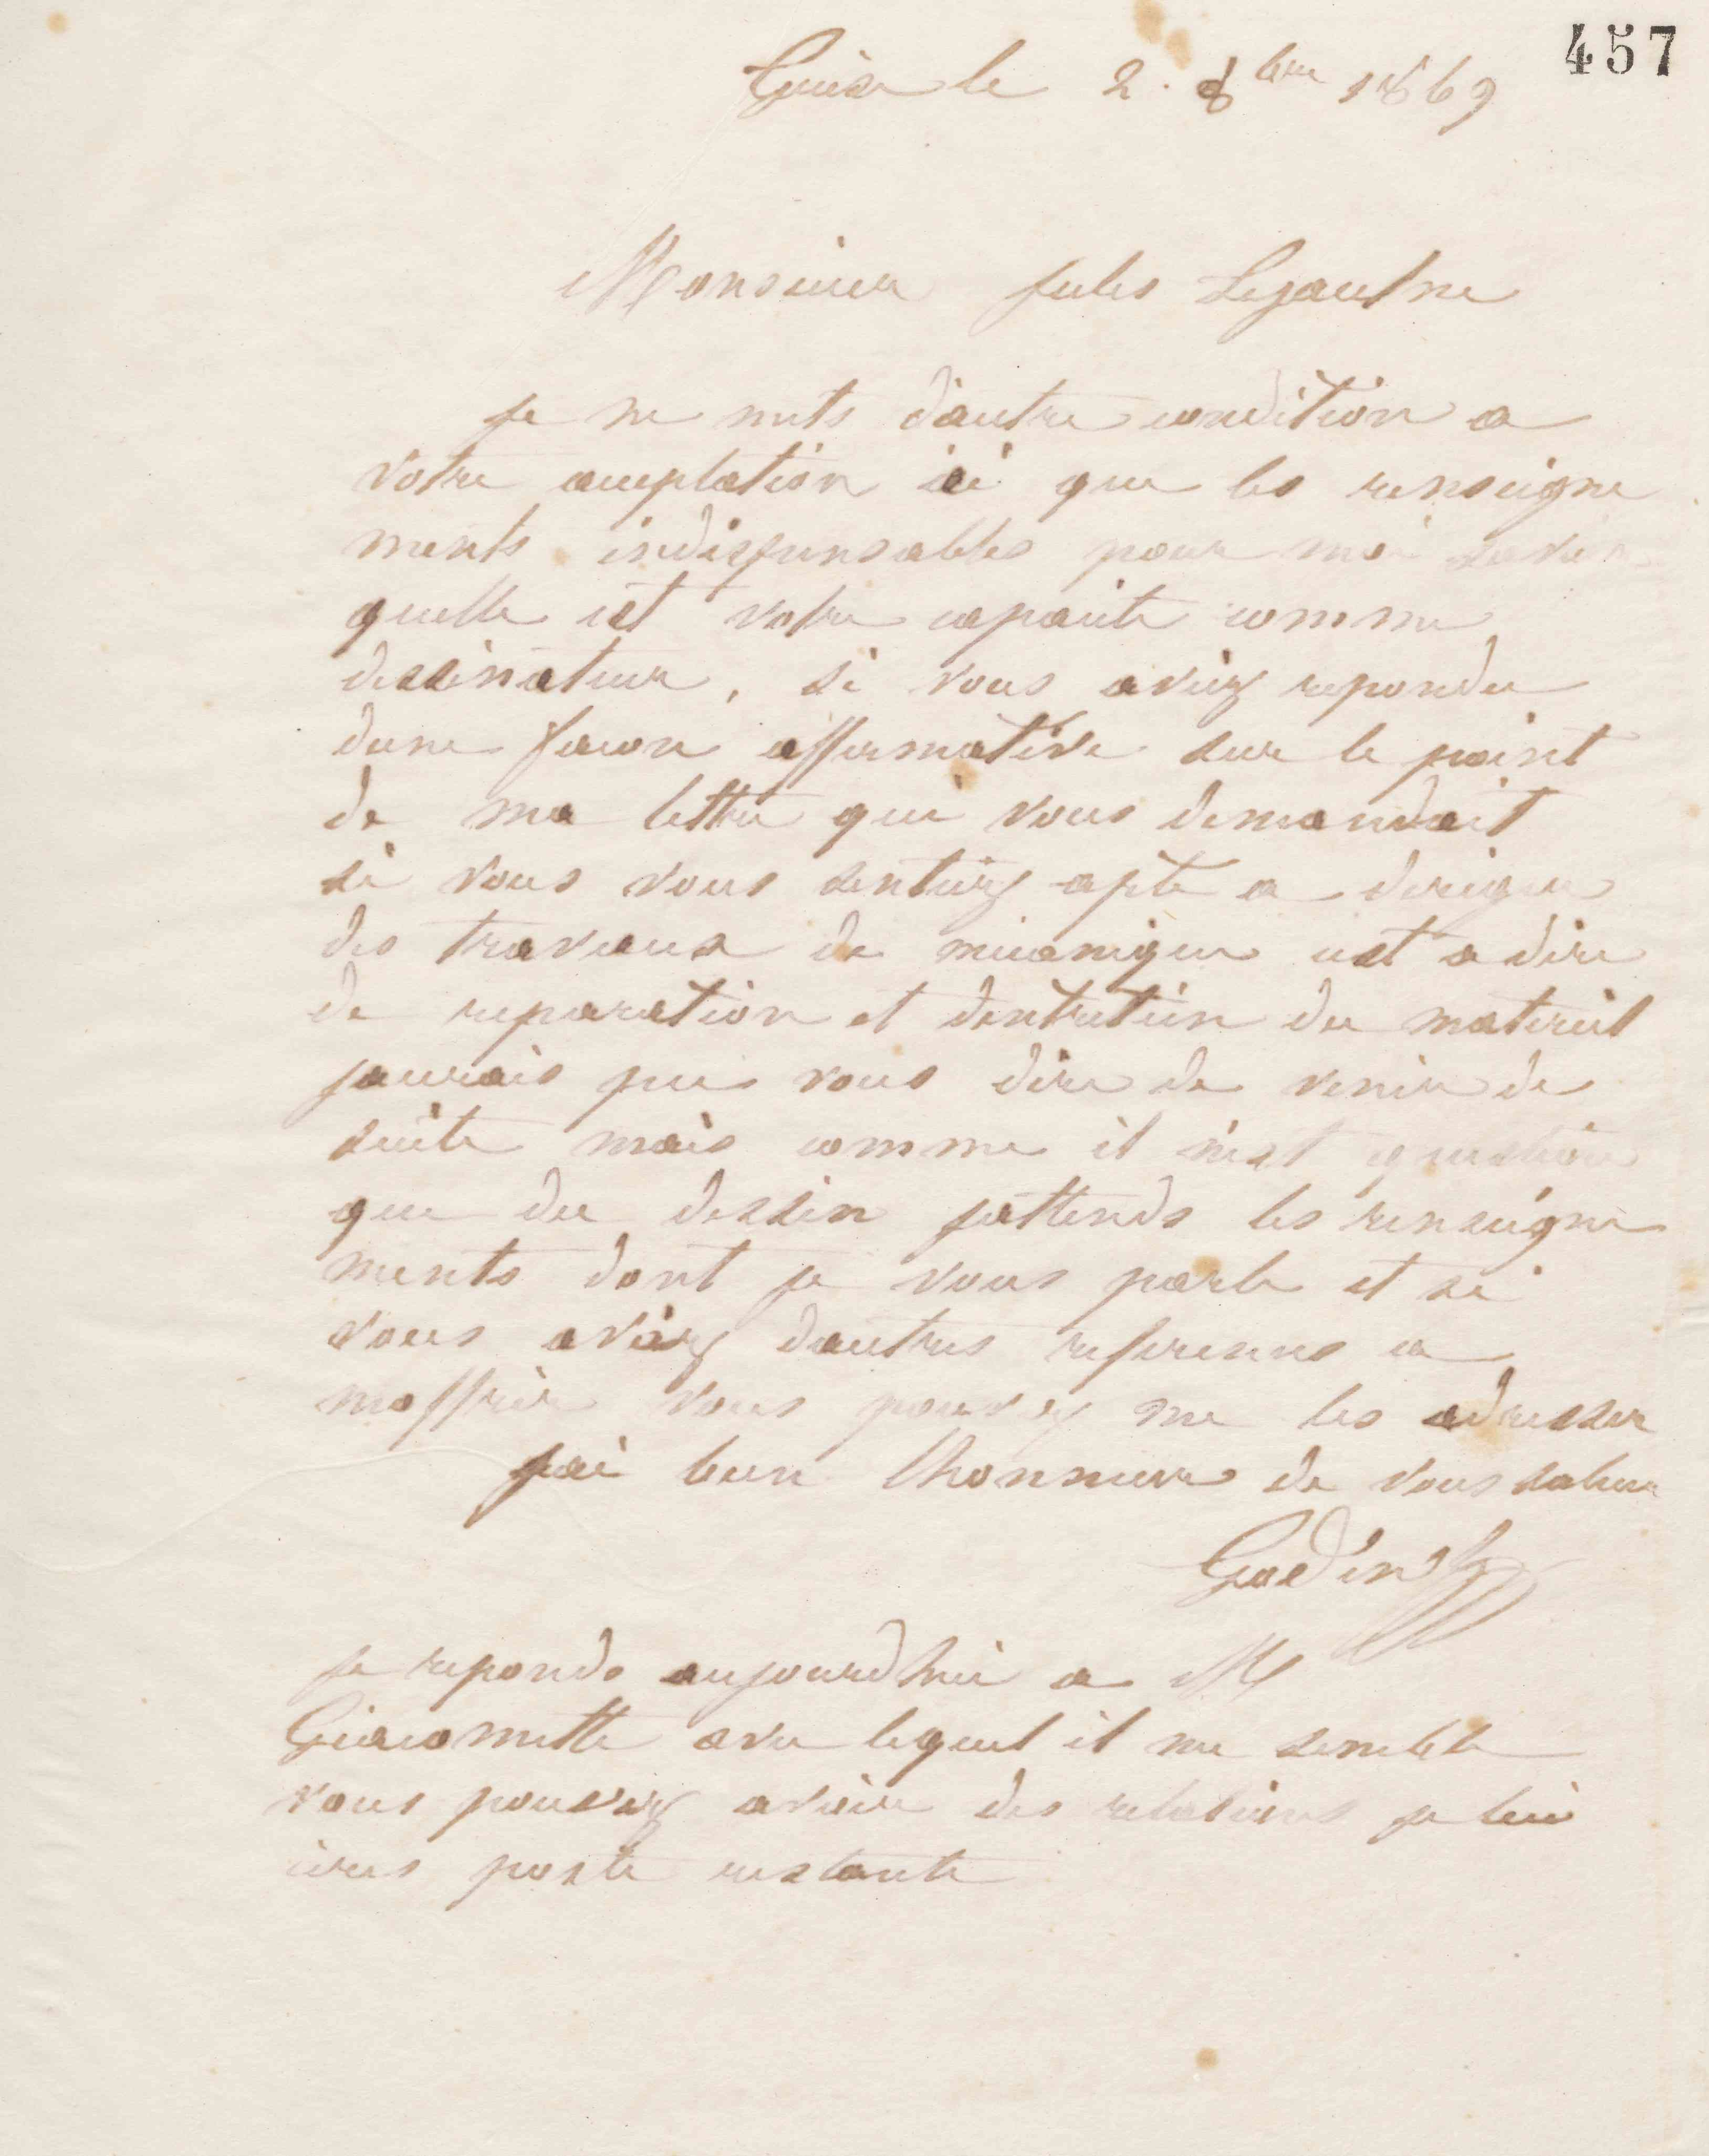 457
Guise le 2. 8bre 1869
Monsieur Jules
je ne mets d'autre condition a
votre acceptation ici que les renseigne
ments indispensables pour moi savoir
quelle est votre capacite comme
dessinateur, si vous aviez repondu
dune facon affirmative sur le point
de ma lettre qui vous demandait
si vous vous sentiez apte a diriger
des travaux de mecanique cest a dire
de reparation et dentretien du materiel
jaurais pu vous dire de venir de
suite mais comme il n'est question
que du dessin jattends les renseigne
ments dont je vous parle et si
vous aviez dautres references a
moffrir vous pouvez me les adresser
jai bien lhonneur de vous saluer
Godin
je reponds aujourdhui a M
Giacometti avec lequel il me semble
vous pouvez avoir des relations je lui
ecris poste restante